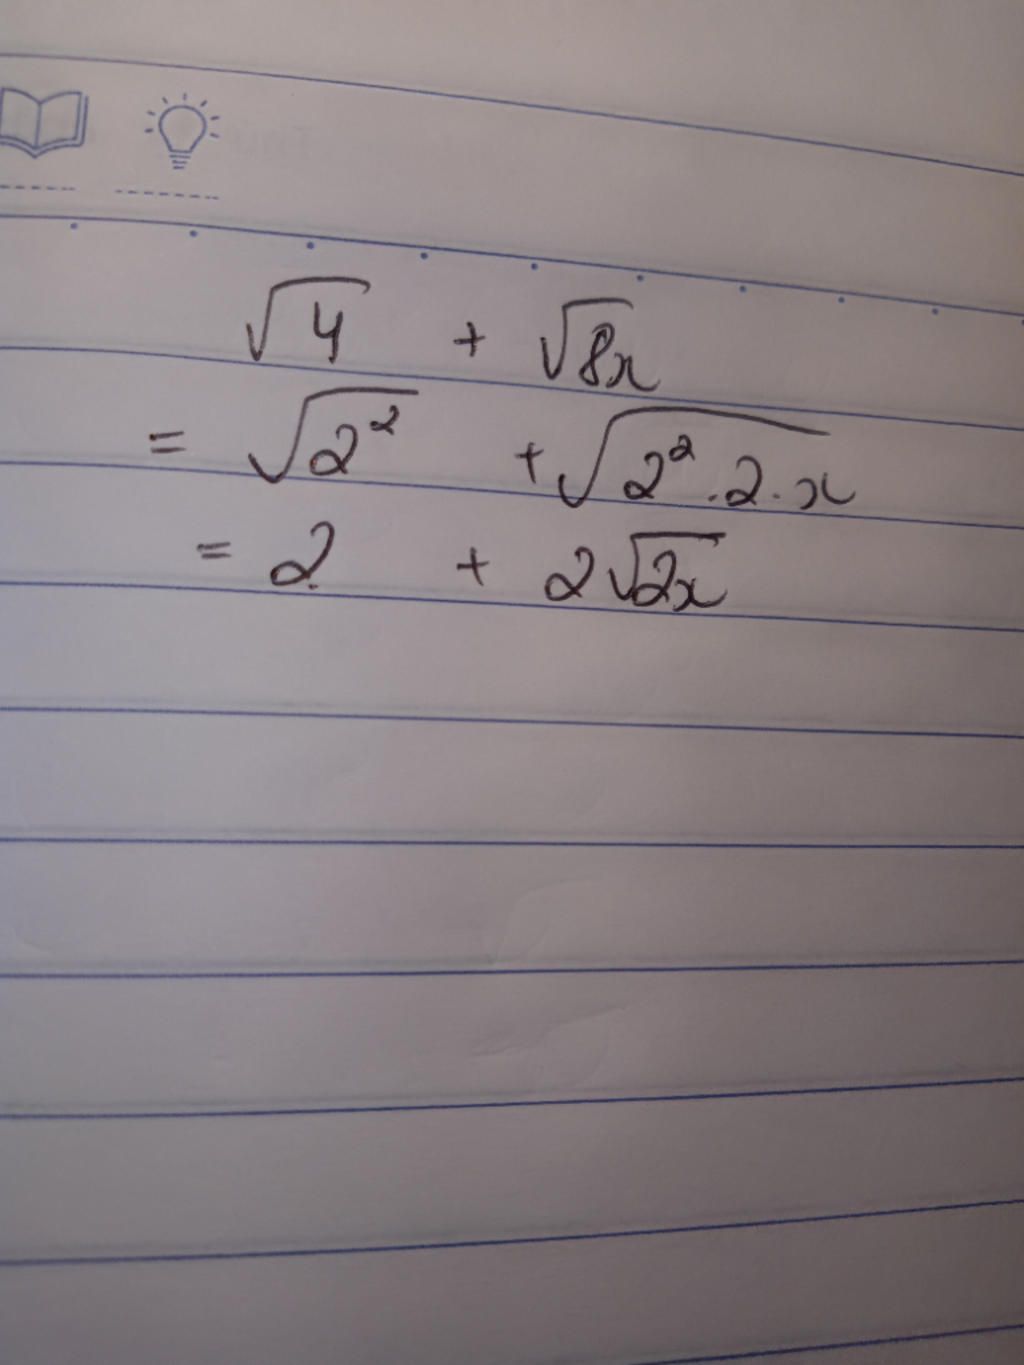 √4 + √8x
= √2² + √2².2.x
= 2 + 2√2x